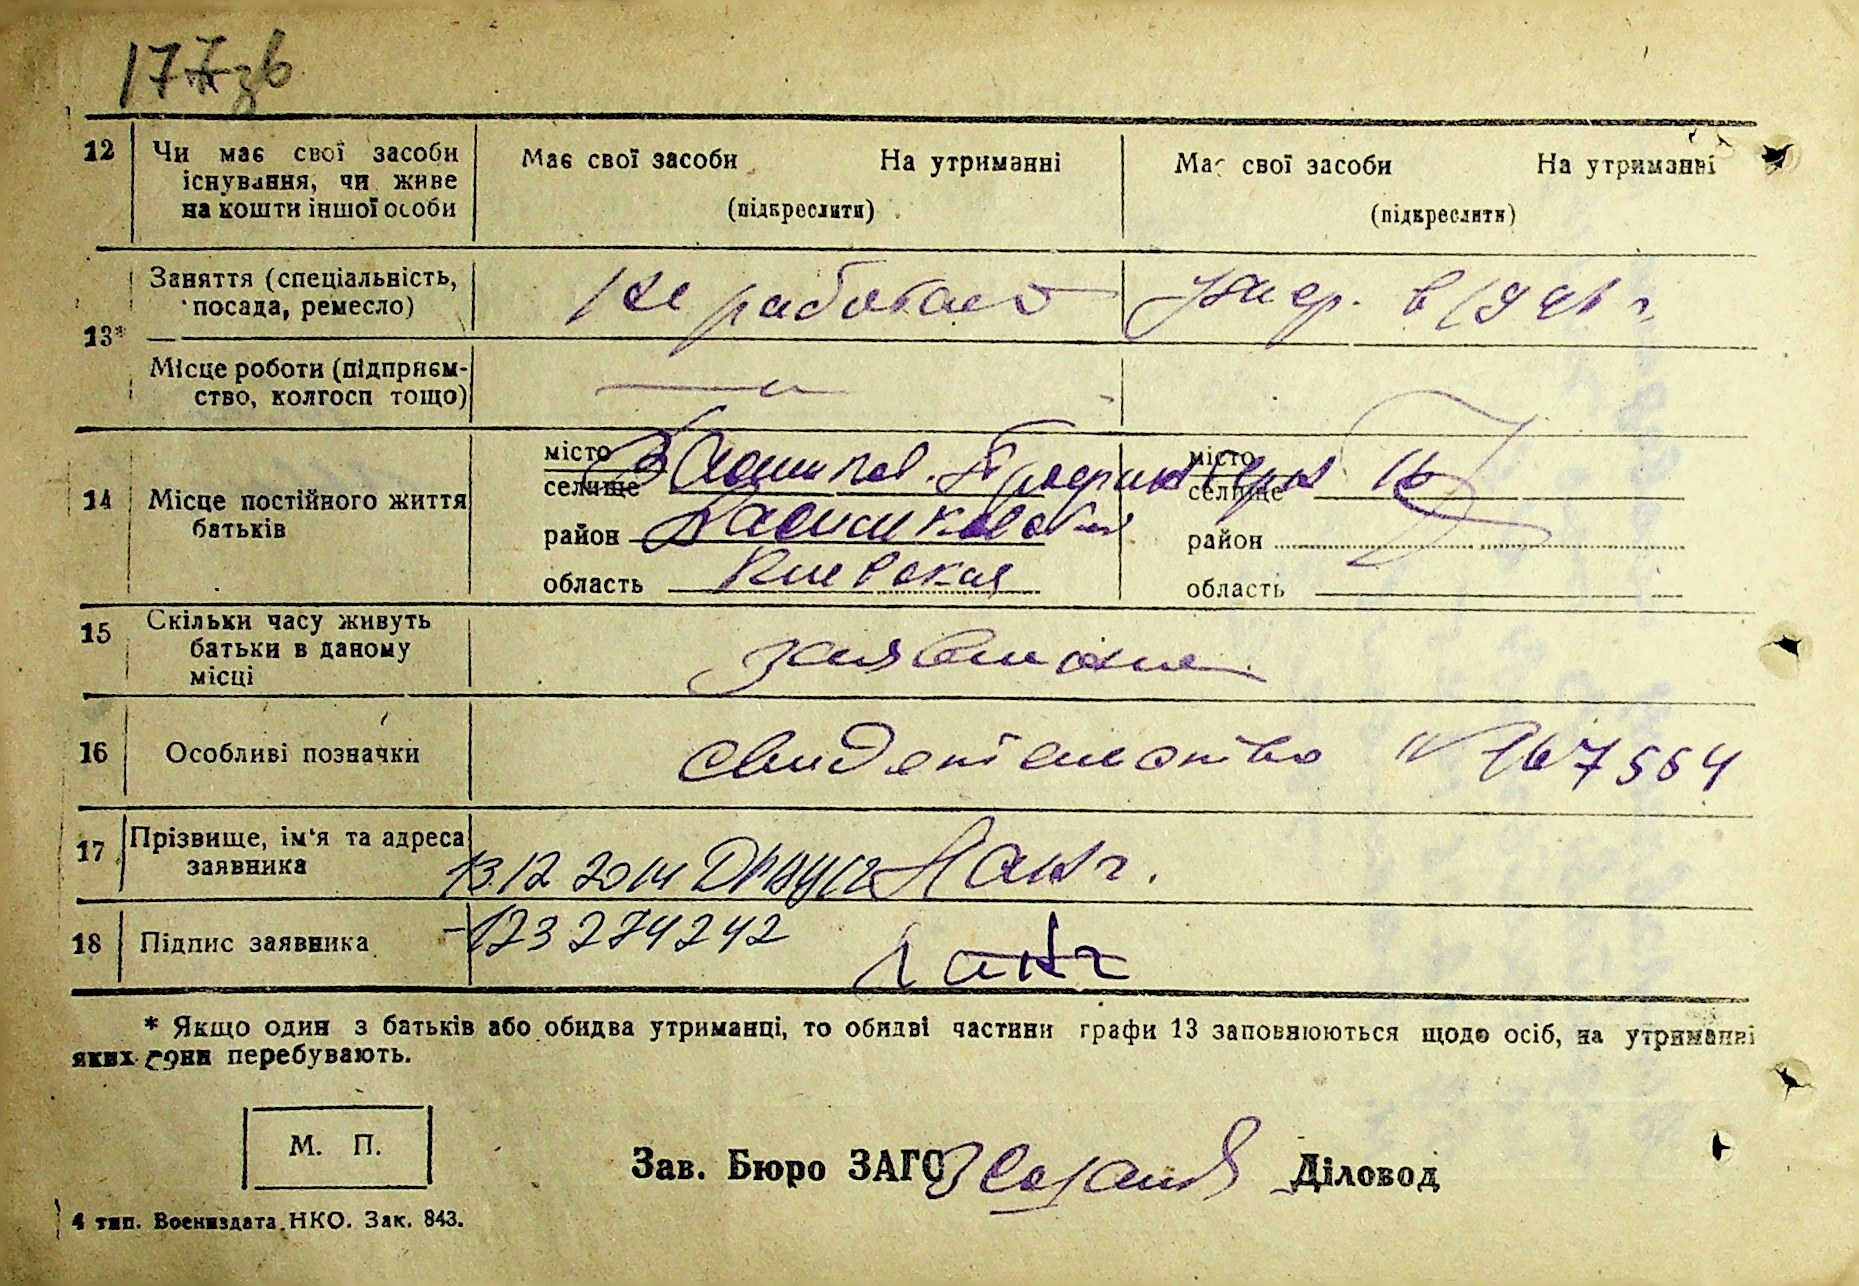 12 Чи має свої засоби існування, чи живе на кошти іншої особи
Має свої засоби На утриманні
(підкреслити)
Має свої засоби На утриманні
(підкреслити)
13*
Заняття (спеціальність, посада, ремесло)
Не работает
умер. в 1941 г.
Місце роботи (підприємство, колгосп тощо)
—
14 Місце постійного життя батьків
місто
селище
район
область Киевская
місто
селище
район
область
15 Скільки часу живуть батьки в даному місці
16 Особливі позначки
свидетельство № 167554
17 Прізвище, ім'я та адреса заявника
13.12 2014
18 Підпис заявника
-123 274242
* Якщо один з батьків або обидва утриманці, то обидві частини графи 13 заповнюються щодо осіб, на утриманні
яких вони перебувають.
М. П.
Зав. Бюро ЗАГС
Діловод
4 тип. Воениздата НКО. Зак. 843.